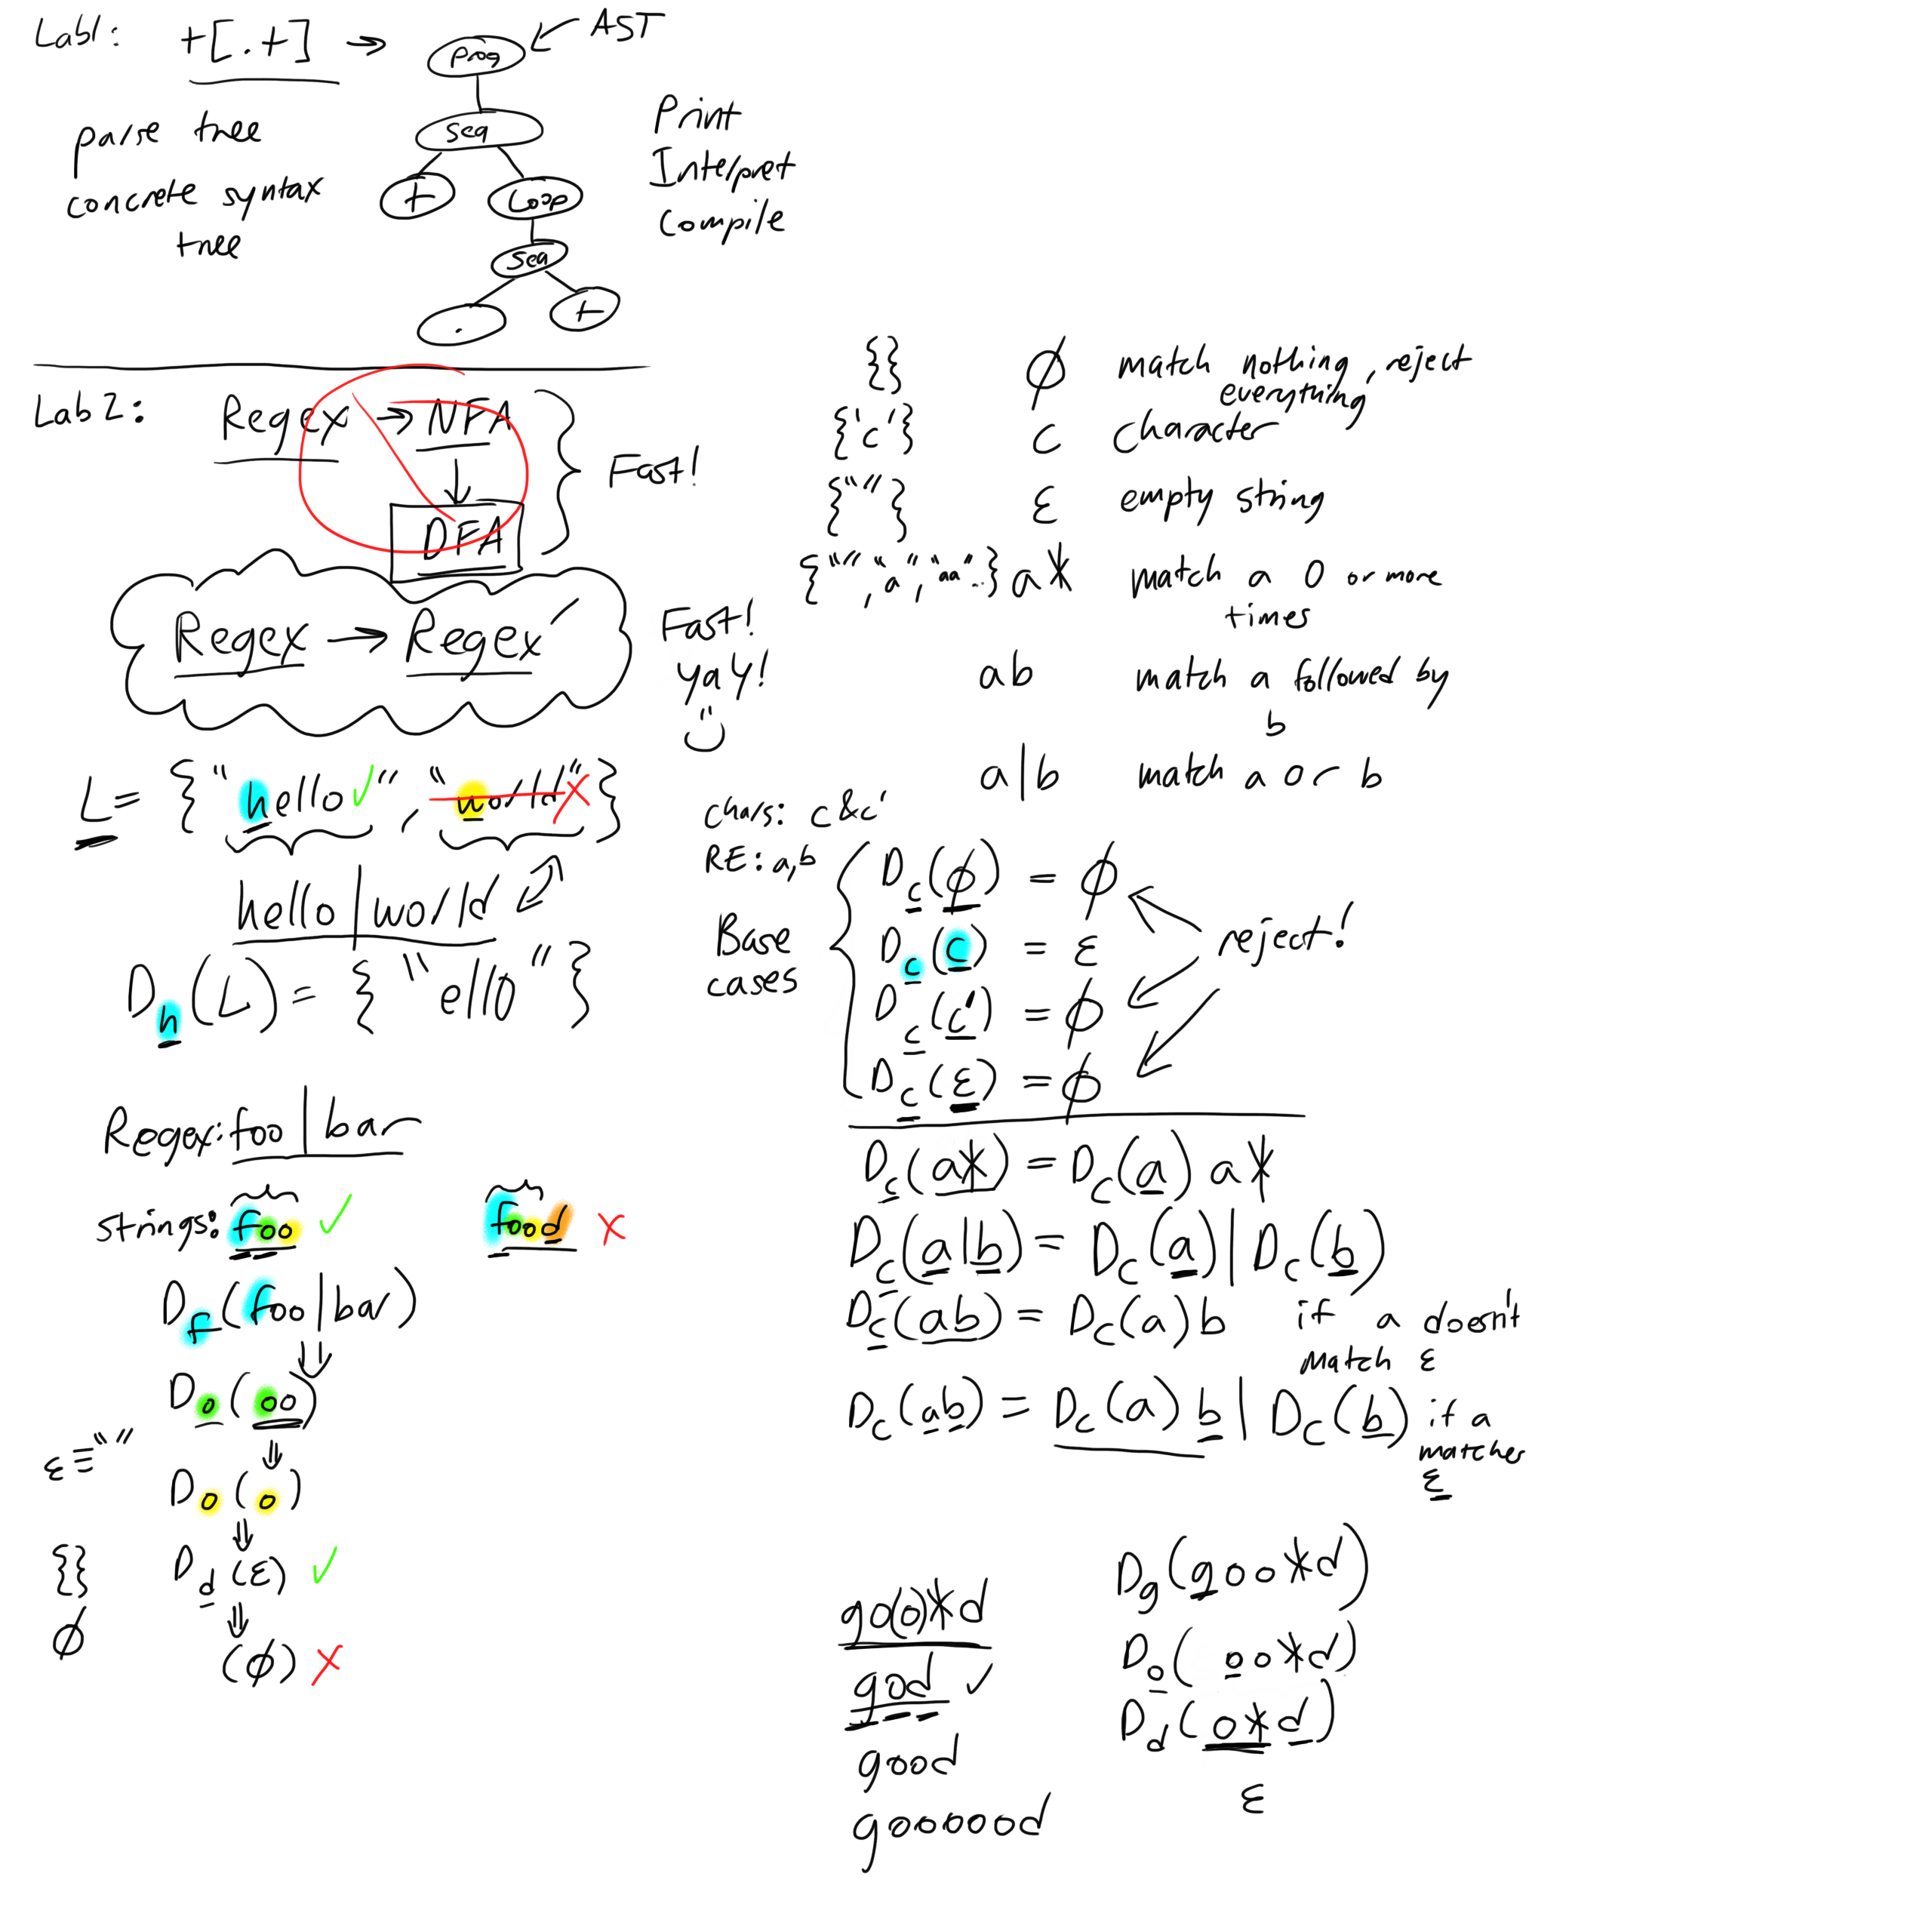 Lab1: +[.+] → Prog ← AST
parse tree
concrete syntax
tree
Seq
+ Loop
Seq
. +
Print
Interpret
Compile
Lab2: Regex → NFA
↓
DFA
Fast!
Regex → Regex'
Fast!
yay!
L = {"hello ✓", "world" X}
hello|world
D_h(L) = {"ello"}
Regex: foo|bar
strings: foo ✓ food X
D_f(foo|bar)
⇓
D_o(oo)
ε≡"" ⇓
D_o(o)
⇓
{} D_d(ε) ✓
⇓
ϕ (ϕ) X
{} ϕ match nothing, reject
everything
{'c'} c character
{""} ε empty string
{"", "a", "aa"..} a* match a 0 or more
times
ab match a followed by
b
a|b match a or b
chars: c & c'
RE: a,b
Base
cases
D_c(ϕ) = ϕ
D_c(c) = ε
D_c(c') = ϕ
D_c(ε) = ϕ
reject!
D_c(a*) = D_c(a) a*
D_c(a|b) = D_c(a)|D_c(b)
D_c(ab) = D_c(a)b if a doesn't
match ε
D_c(ab) = D_c(a) b | D_c(b) if a
matches
ε
go(o)*d
god ✓
good
gooooood
D_g(goo*d)
D_o(oo*d)
D_d(o*d)
ε